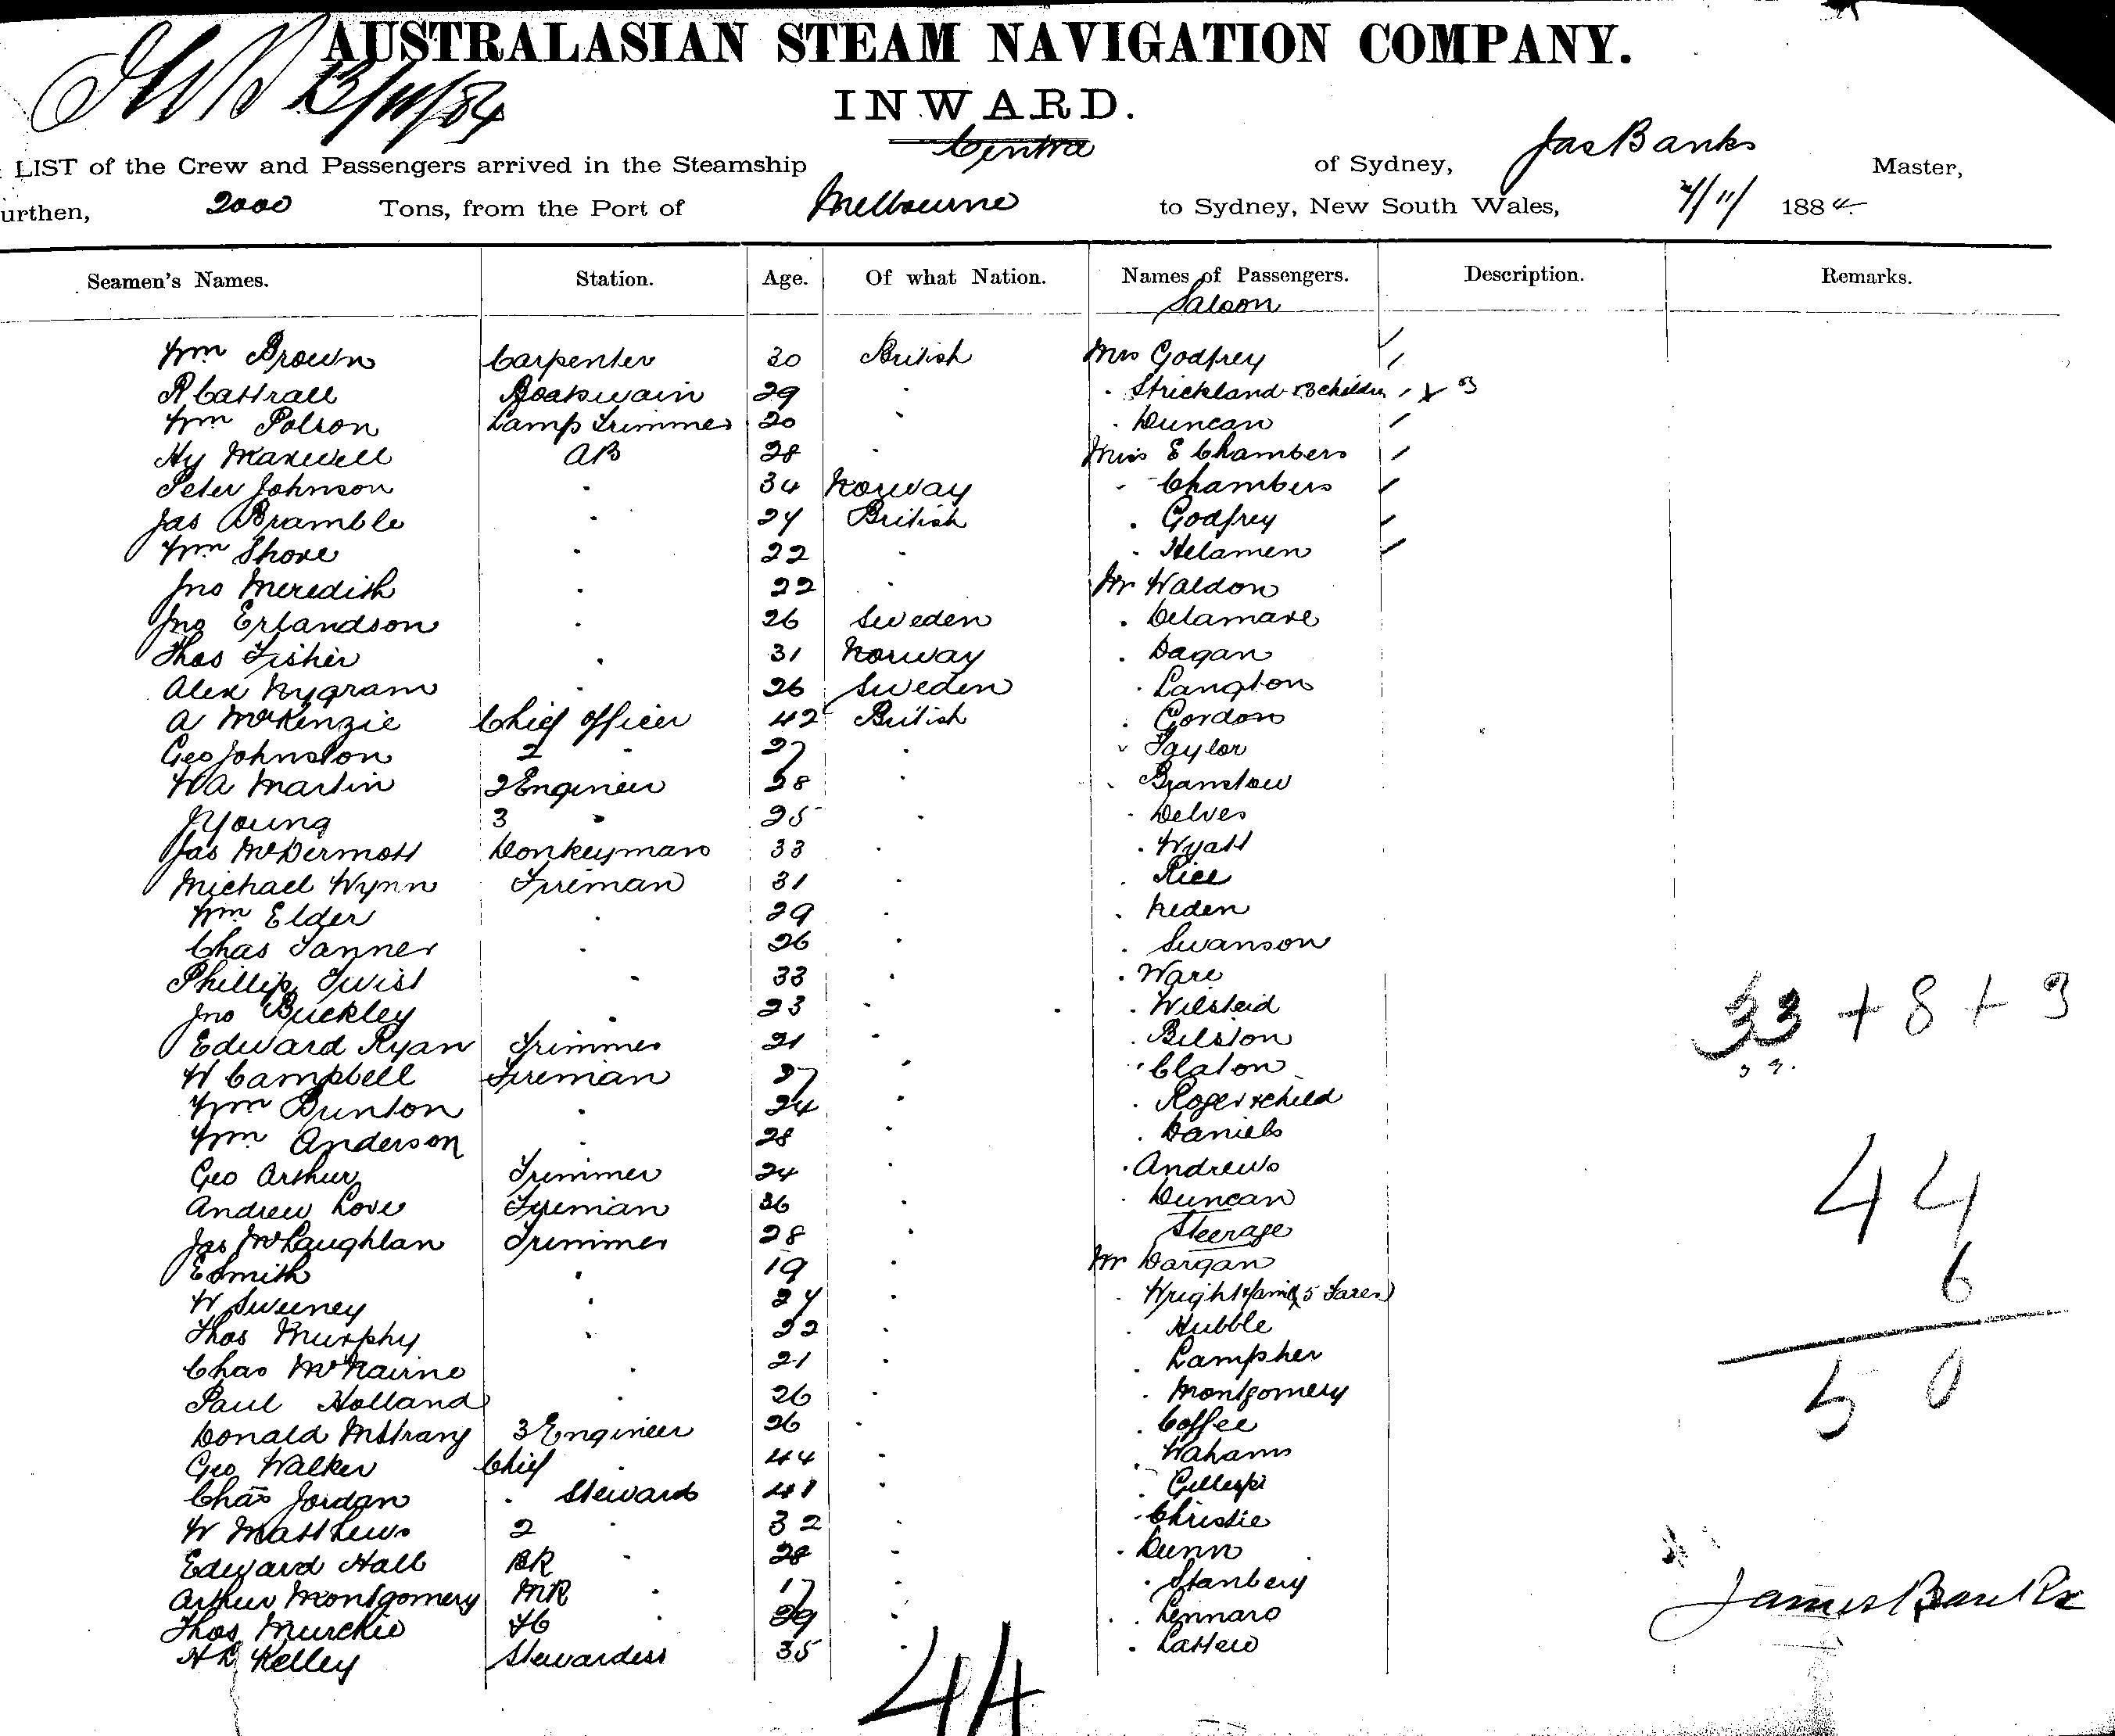 AUSTRALASIAN STEAM NAVIGATION COMPANY.
13/11/84
INWARD.
LIST of the Crew and Passengers arrived in the Steamship Cintra of Sydney, Jas Banks Master,
urthen, 2000 Tons, from the Port of Melbourne to Sydney, New South Wales, /11/ 1884
Seamen's Names. Station. Age. Of what Nation. Names of Passengers. Description. Remarks.
Saloon
Wm Brown Carpenter 30 British Mrs Godfrey
R Cattrall Boatswain 29 " " Strickland & 3 children x 3
Wm Polson Lamp Trimmer 20 " " Duncan
Hy Maxwell AB 28 " Miss E Chambers
Peter Johnson " 34 Norway " Chambers
Jas Bramble " 24 British " Godfrey
Wm Shove " 22 " " Helamen
Jno Meredith " 22 " Mr Waldon
Jno Erlandson " 26 Sweden " Delamare
Thos Fisher " 31 Norway " Dagan
Alex Nygram " 26 Sweden " Langton
A McKenzie Chief Officer 42 British " Gordon
Geo Johnston 2 " 27 " " Taylor
W A Martin 2 Engineer 28 " " Branstow
J Young 3 " 25 " " Delves
Jas McDermott Donkeyman 33 " " Wyatt
Michael Wynn Fireman 31 " " Rice
Wm Elder " 29 " " Neden
Chas Tanner " 26 " " Swanson
Phillip Twist " 33 " " Ware
Jno Buckley " 23 " " Wilsteid
Edward Ryan Trimmer 21 " " Bilston
W Campbell Fireman 27 " " Claton
Wm Bunton " 24 " " Roger & child
Wm Anderson " 28 " " Daniels
Geo Arthur Trimmer 24 " " Andrews
Andrew Love Fireman 36 " " Duncan
Steerage
Jas McLaughlan Trimmer 28 "
E Smith " 19 " Mr Dargan
W Sweeney " 24 " " Wright & family (5 Fares)
Thos Murphy " 22 " " Hubble
Chas McNairne " 21 " " Lampher
Paul Holland " 26 " " Montgomery
Donald McStrang 3 Engineer 26 " " Coffee
Geo Walker Chief " 44 " " Wahams
Chas Jordan " Steward 41 " " Gillespi
W Matthews 2 " 32 " " Christie
Edward Hall BR " 28 " " Dunn
Arthur Montgomery MR " 17 " " Stanbery
Thos Murchie FC " 29 " " Lennard
H L Kelley Stewardess 35 " " Lattew
33 + 8 + 3
44
6
50
James Banks
44